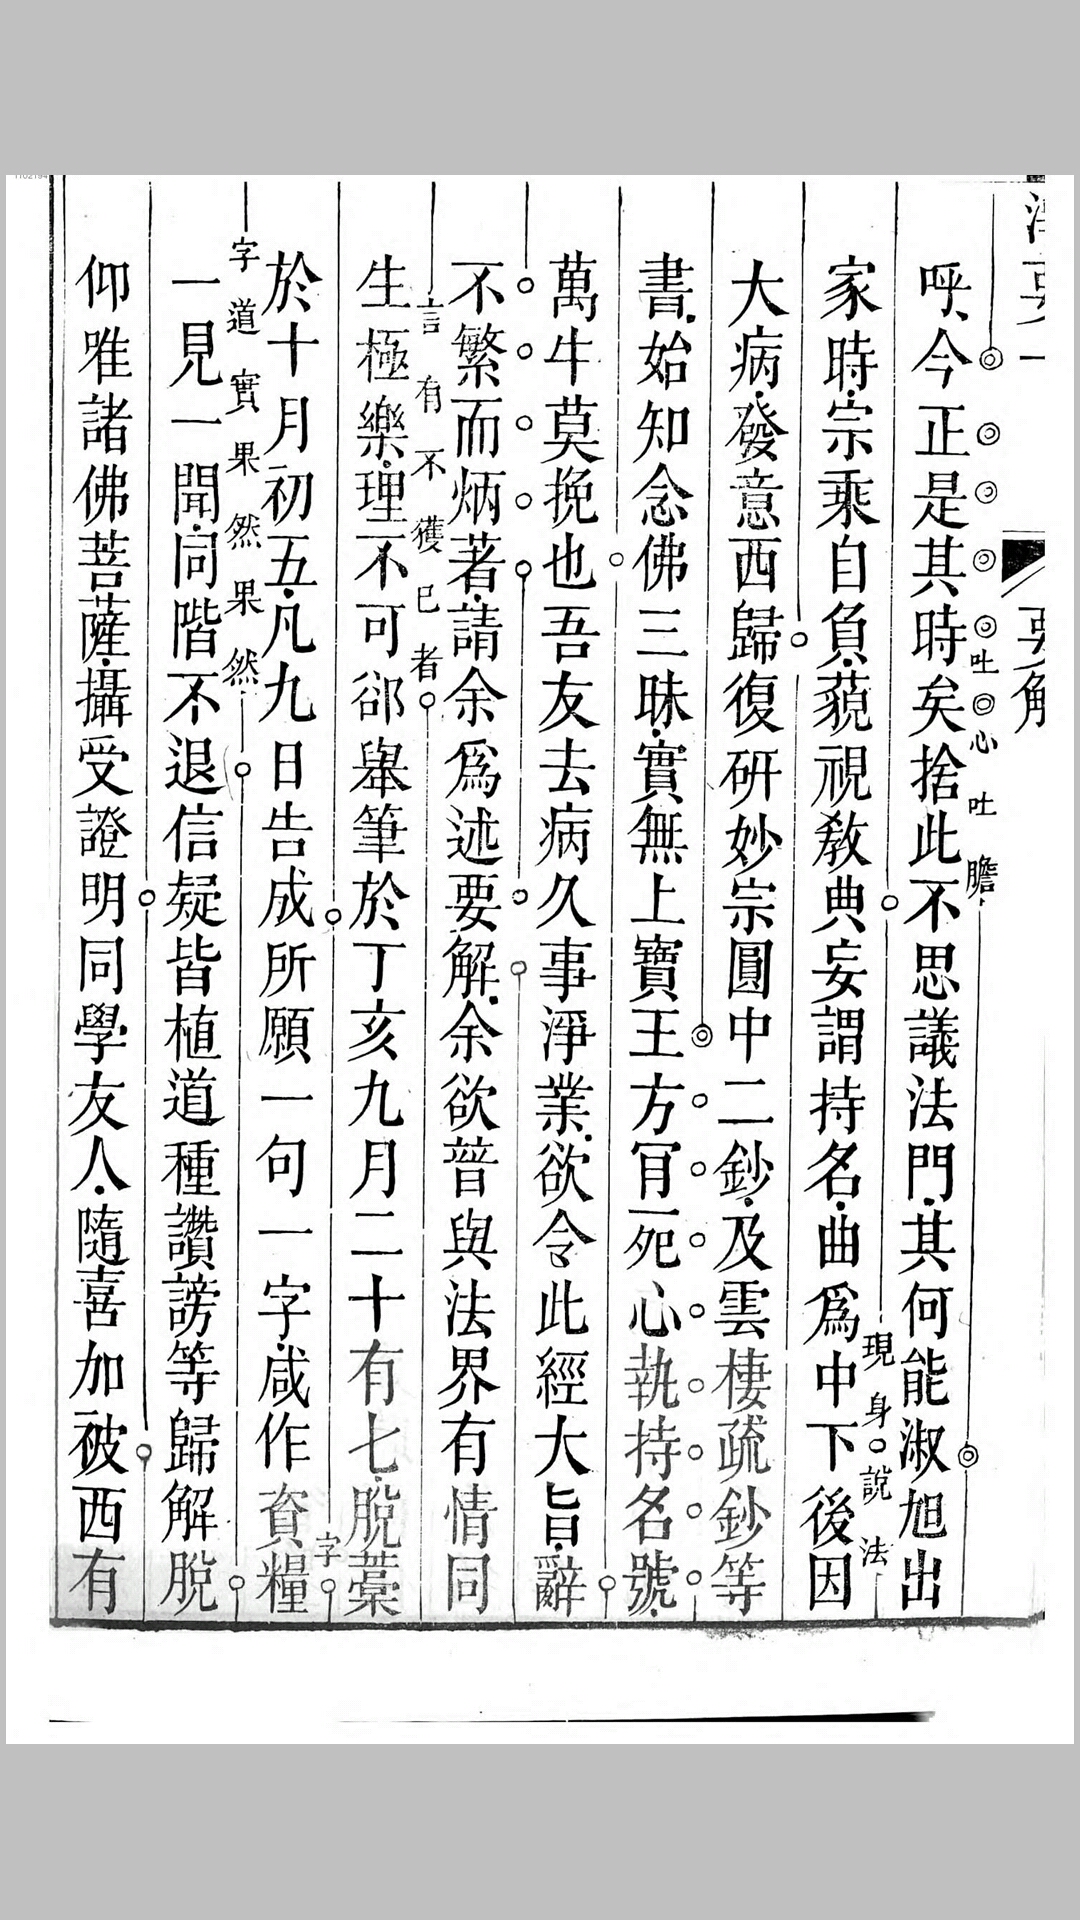 呼、今正是其時矣捨此不思議法門、其何能淑旭出
吐心吐膽
家時、宗乘自負、藐視敎典妄謂持名、曲爲中下後因
現身說法
大病、發意西歸復硏妙宗圓中二鈔、及雲棲疏鈔等
書、始知念佛三昧、實無上寶王方肎死心執持名號、
萬牛莫挽也吾友去病久事淨業、欲令此經大旨、辭
不繁而炳著、請余爲述要解、余欲普與法界有情同
生極樂、理不可郤擧筆於丁亥九月二十有七、脫藁
言有不獲已者
於十月初五、凡九日告成所願一句一字、咸作資糧
字字道實果然果然
一見一聞、同階不退信疑皆植道種讚謗等歸解脫
仰唯諸佛菩薩、攝受證明同學友人、隨喜加被西有